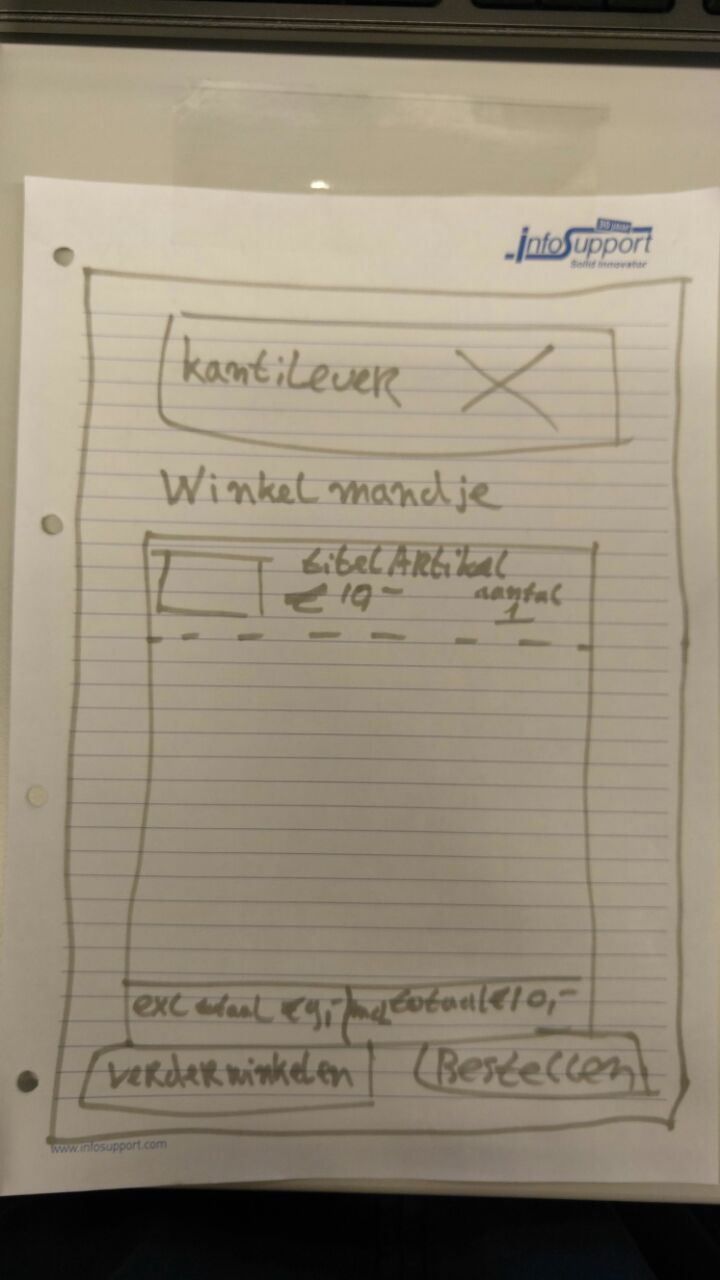 30 jaar
infoSupport
Solid Innovator
kantilever
Winkelmandje
titel Artikel
€ 10-
aantal
1
excl totaal €9,- / incl totaal €10,-
verder winkelen
Bestellen
www.infosupport.com